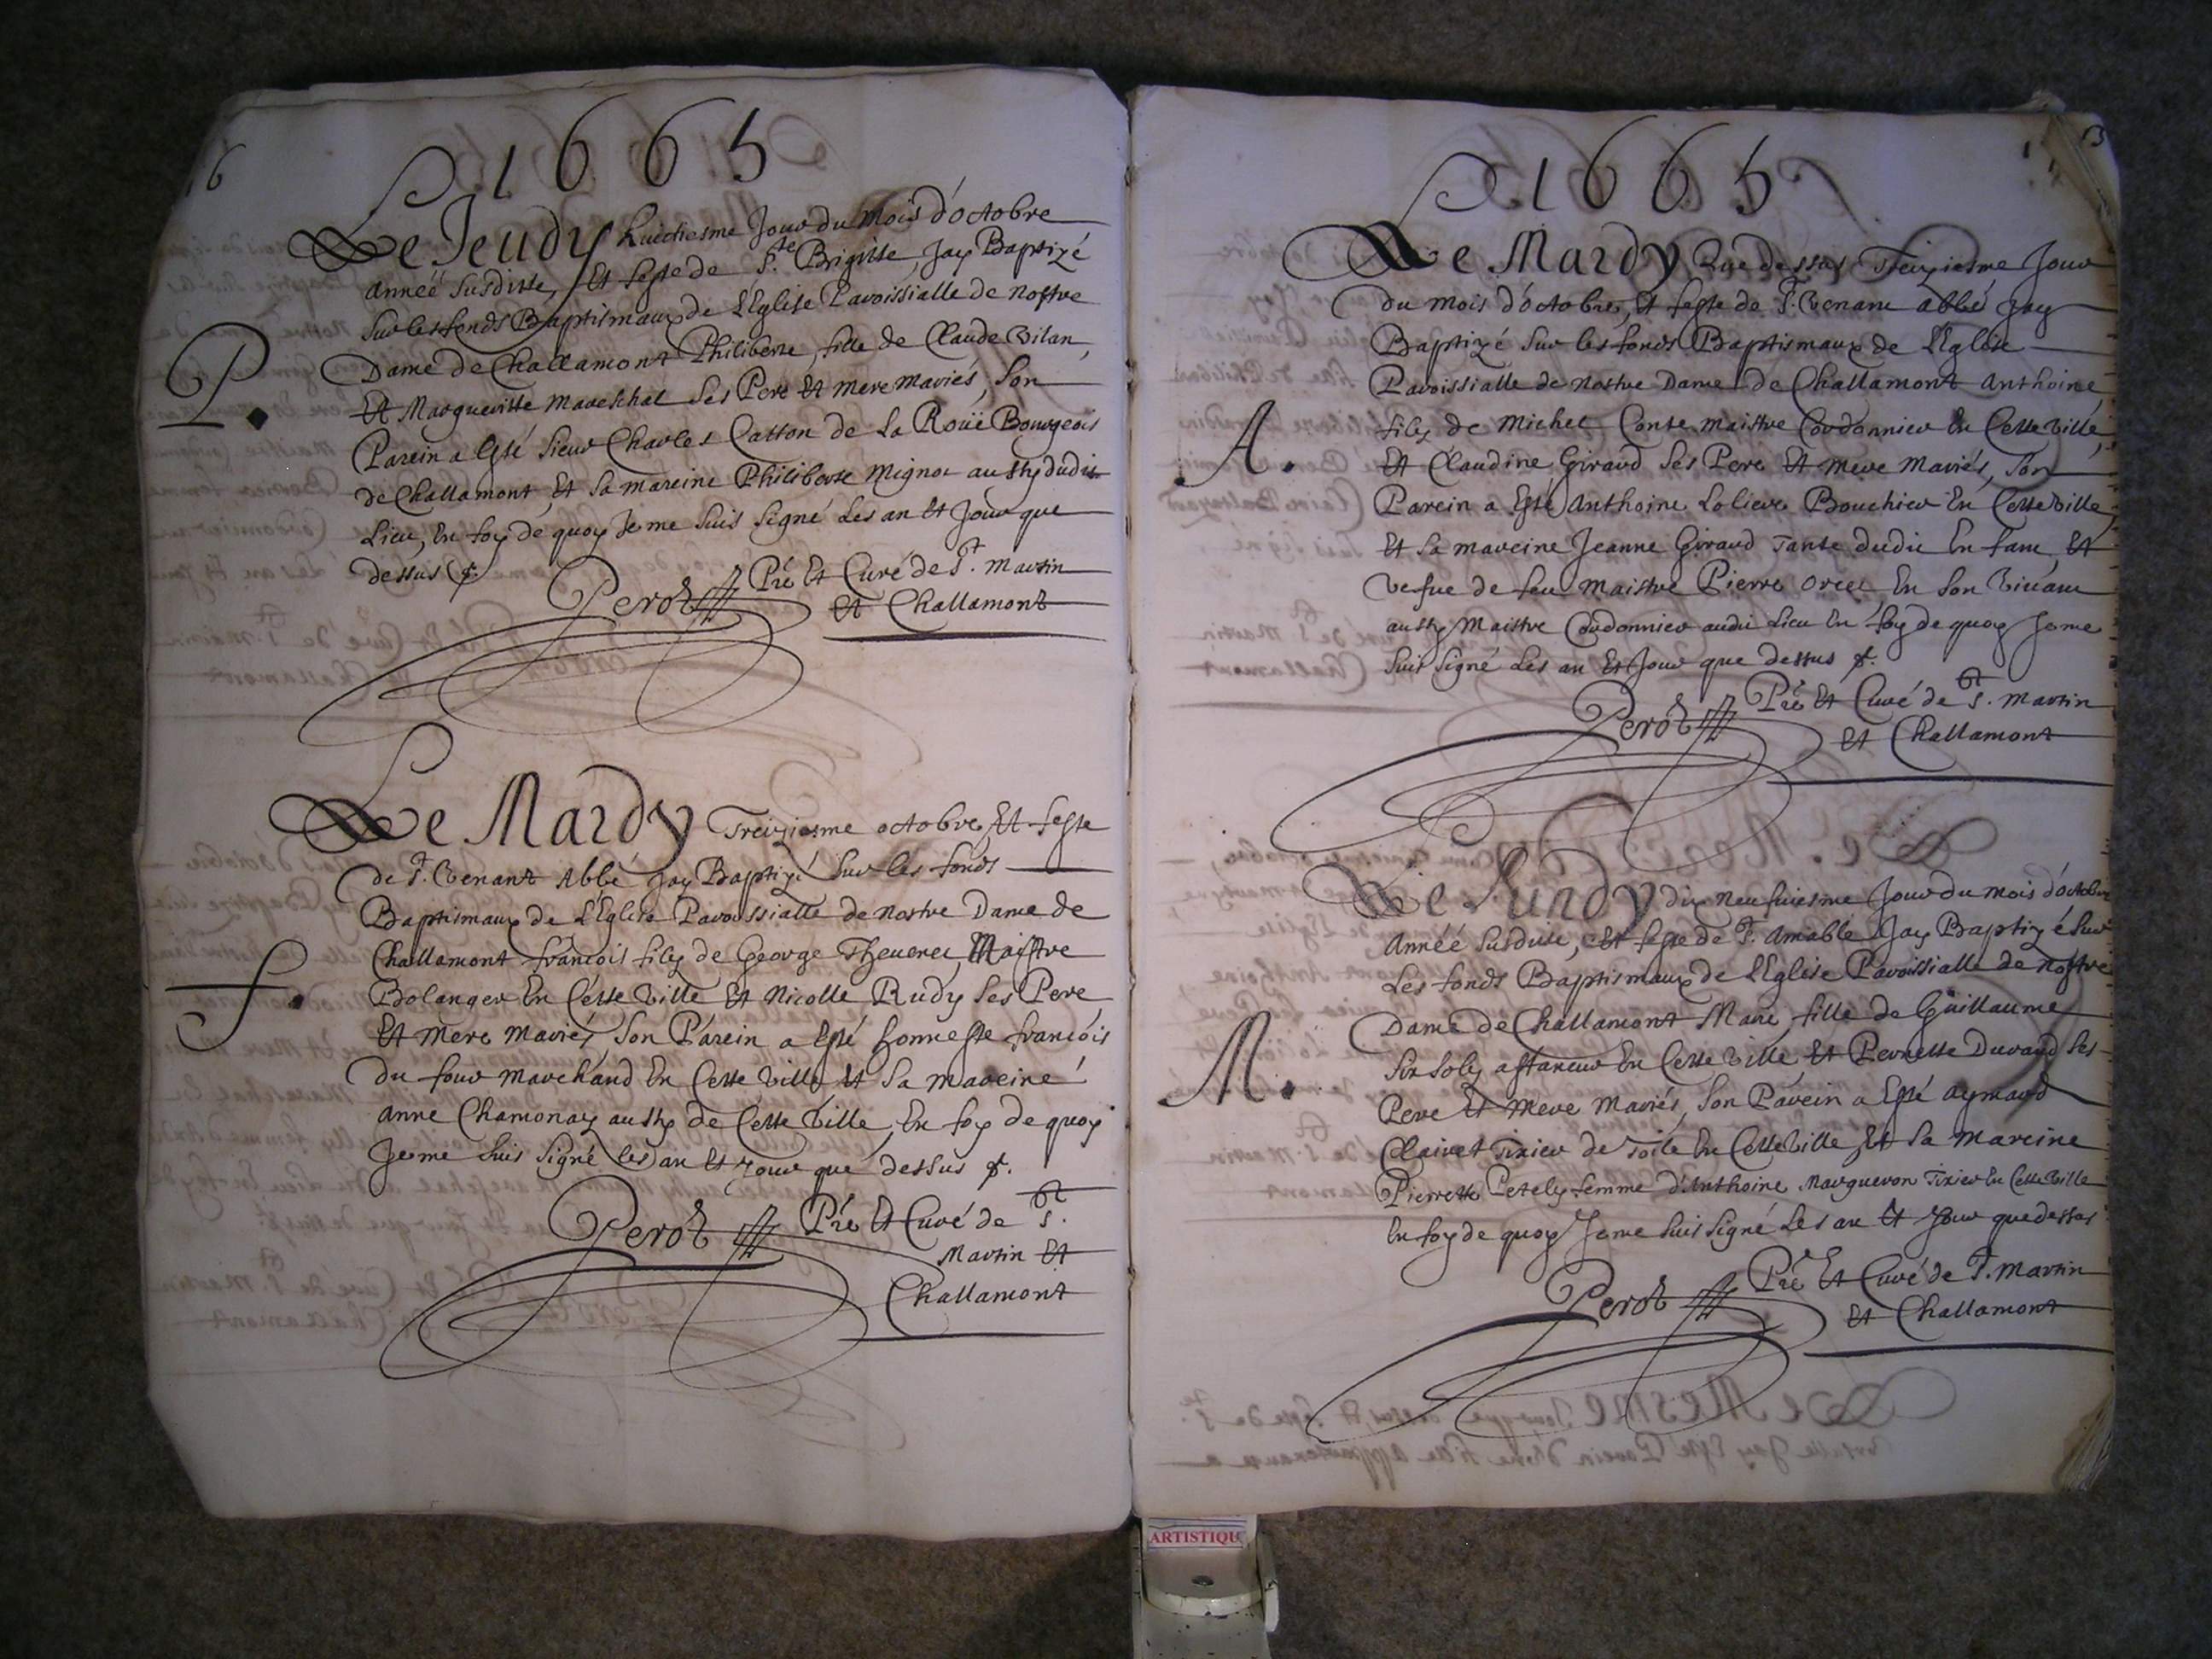 16
1665
Le Jeudy huictiesme Jour du mois d'octobre
Année susditte, Et feste de S.te Brigitte, Jay Baptizé
sur les fonds Baptismaux de L'Eglise Paroissialle de nostre
Dame de Challamont Philiberte fille de Claude Vilan,
P.
Et Margueritte Mareschal ses Pere Et mere mariés, son
Parein a Esté sieur Charles Catton de La Roüe Bourgeois
de Challamont, Et sa mareine Philiberte Mignot aussy dudit
Lieu, En foy de quoy Je me suis signé Les an Et Jour que
dessus &.
Perot Pre Et Curé de St. Martin
Et Challamont
Le Mardy Treiziesme octobre, Et feste
de St. Venant Abbé Jay Baptizé sur les fonds
Baptismaux de L'Eglise Paroissialle de nostre Dame de
Challamont françois filz de George Thevenet, Maistre
f.
Bolanger En Cette Ville Et Nicolle Rudy ses Pere
Et mere mariés, son Parein a Esté honneste françois
du four marchand En Cette Ville, Et sa mareine
anne Chamonay aussy de Cette Ville, En foy de quoy
Je me suis signé les an Et Jour que dessus &.
Perot Pre Et Curé de St.
Martin Et
Challamont
1665
Le Mardy que dessus Treiziesme Jour
du mois d'octobre, Et feste de St. Venant abbé Jay
Baptizé sur les fonds Baptismaux de L'Eglise
Paroissialle de nostre Dame de Challamont Anthoine
A.
filz de Michel Conte maistre Cordonnier En Cette Ville,
Et Claudine Giraud ses Pere Et mere mariés, son
Parein a Esté Anthoine Loliere Bouchier En Cette Ville,
Et sa mareine Jeanne Giraud Tante dudit Enfant, Et
vefue de feu maistre Pierre Orcet En son Vivant
aussy Maistre Cordonnier audit Lieu En foy de quoy Je me
suis signé Les an Et Jour que dessus &.
Perot Pre Et Curé de St. Martin
Et Challamont
Le Lundy dix neufuiesme Jour du mois d'octobre
Année susditte, Et feste de St. Amable Jay Baptizé sur
Les fonds Baptismaux de L'Eglise Paroissialle de nostre
Dame de Challamont Marie fille de Guillaume
M.
en Cette Ville, Et Pernette Durand ses
Pere Et mere mariés, son Parein a Esté aymard
Clairet Tixier de Toile En Cette Ville, Et sa mareine
Pierrette Petely femme d'Anthoine Margueron Tixier En Cette Ville
En foy de quoy Je me suis signé Les an Et Jour que dessus
Perot Pre Et Curé de St. Martin
Et Challamont
ARTISTIQU